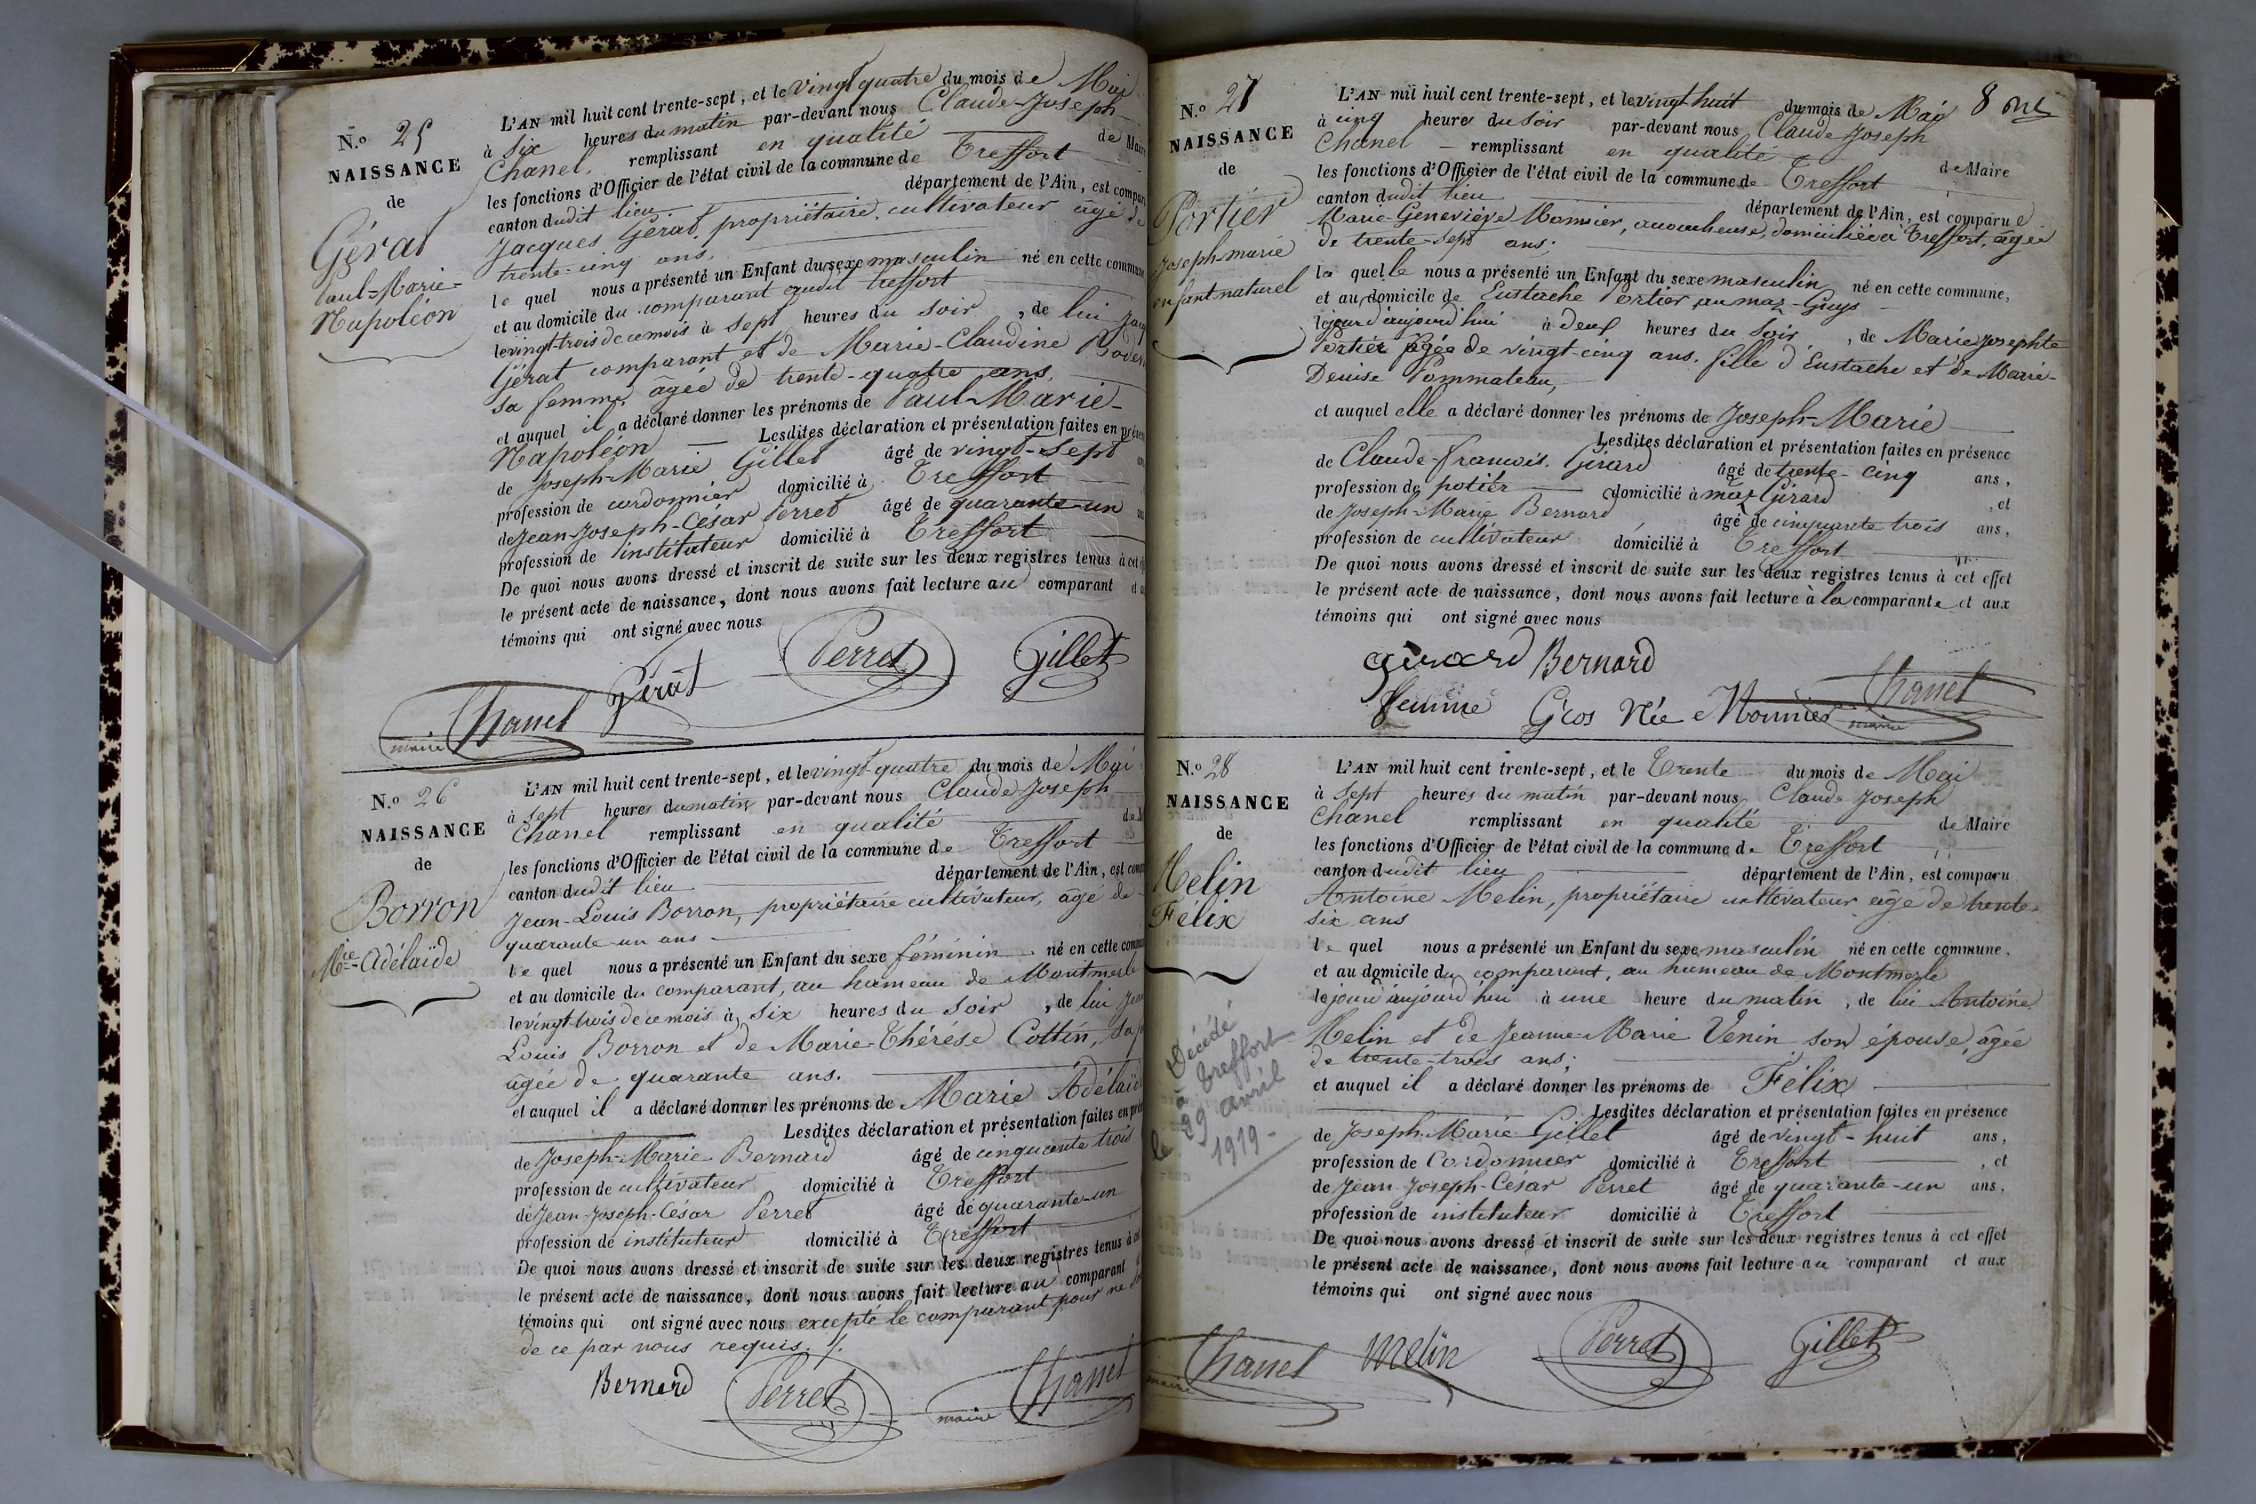 N.o 25
NAISSANCE
de
Gérat
Paul-Marie-
Napoléon
L'AN mil huit cent trente-sept, et le vingt quatre du mois de Mai
à six heures du matin par-devant nous Claude-Joseph
Chanel, remplissant en qualité de Maire
les fonctions d'Officier de l'état civil de la commune de Treffort
canton dudit lieu département de l'Ain, est comparu
Jacques Gérat, propriétaire, cultivateur âgé de
trente-cinq ans.
le quel nous a présenté un Enfant du sexe masculin né en cette commune
et au domicile du comparant audit treffort
le vingt-trois de ce mois à sept heures du soir, de lui
Gérat comparant et de Marie-Claudine
sa femme âgée de trente-quatre ans.
et auquel il a déclaré donner les prénoms de Paul-Marie-
Napoléon Lesdites déclaration et présentation faites en
de Joseph-Marie Gillet âgé de vingt-sept
profession de cordonnier domicilié à Treffort
de Jean-Joseph-César Perret âgé de quarante-un
profession de instituteur domicilié à Treffort
De quoi nous avons dressé et inscrit de suite sur les deux registres tenus à cet
le présent acte de naissance, dont nous avons fait lecture au comparant et
témoins qui ont signé avec nous
Perret Gillet
maire Chanel Gérat
N.o 26
NAISSANCE
de
Borron
Mie-Adélaïde
L'AN mil huit cent trente-sept, et le vingt-quatre du mois de Mai
à sept heures du matin par-devant nous Claude-Joseph
Chanel remplissant en qualité de
les fonctions d'Officier de l'état civil de la commune de Treffort
canton dudit lieu département de l'Ain, est
Jean-Louis Borron, propriétaire cultivateur, âgé de
quarante-un ans
le quel nous a présenté un Enfant du sexe féminin né en cette
et au domicile du comparant, au hameau de Montmerle
le vingt-trois de ce mois à six heures du soir, de lui Jean
Louis Borron et de Marie-Thérèse Cottin, sa
âgée de quarante ans.
et auquel il a déclaré donner les prénoms de Marie Adélaïde
Lesdites déclaration et présentation faites en
de Joseph-Marie Bernard âgé de cinquante trois
profession de cultivateur domicilié à Treffort
de Jean-Joseph-César Perret âgé de quarante-un
profession de instituteur domicilié à Treffort
De quoi nous avons dressé et inscrit de suite sur les deux registres tenus à
le présent acte de naissance, dont nous avons fait lecture au comparant
témoins qui ont signé avec nous excepté le comparant pour ne
de ce par nous requis ./.
Bernard Perret maire Chanel
8
N.o 27
NAISSANCE
de
Portier
Joseph-marie
enfant naturel
L'AN mil huit cent trente-sept, et le vingt-huit du mois de Mai
à cinq heures du soir par-devant nous Claude Joseph
Chanel remplissant en qualité de Maire
les fonctions d'Officier de l'état civil de la commune de Treffort
canton dudit lieu département de l'Ain, est comparue
Marie-Geneviève Monnier, accoucheuse, domiciliée à Treffort, âgée
de trente-sept ans.
la quelle nous a présenté un Enfant du sexe masculin né en cette commune,
et au domicile de Eustache Portier au maz-Guys
le jour d'aujourd'hui à deux heures du soir, de Marie Josephte
Portier âgée de vingt-cinq ans, fille d'Eustache et de Marie-
Denise Pommateau,
et auquel elle a déclaré donner les prénoms de Joseph-Marie
Lesdites déclaration et présentation faites en présence
de Claude-francois Girard âgé de trente-cinq ans,
profession de potier domicilié à maz Girard, et
de Joseph-Marie Bernard âgé de cinquante trois ans,
profession de cultivateur domicilié à Treffort
De quoi nous avons dressé et inscrit de suite sur les deux registres tenus à cet effet
le présent acte de naissance, dont nous avons fait lecture à la comparante et aux
témoins qui ont signé avec nous
girard Bernard
femme Gros Née Monnier Chanel maire
N.o 28
NAISSANCE
de
Melin
Félix
Décédé
à treffort
le 29 avril
1919-
L'AN mil huit cent trente-sept, et le Trente du mois de Mai
à sept heures du matin par-devant nous Claude Joseph
Chanel remplissant en qualité de Maire
les fonctions d'Officier de l'état civil de la commune de Treffort
canton dudit lieu département de l'Ain, est comparu
Antoine Melin, propriétaire cultivateur âgé de trente-
six ans
le quel nous a présenté un Enfant du sexe masculin né en cette commune,
et au domicile du comparant, au hameau de Montmerle
le jour d'aujourd'hui à une heure du matin, de lui Antoine
Melin et de Jeanne-Marie Venin son épouse, âgée
de trente-trois ans;
et auquel il a déclaré donner les prénoms de Félix
Lesdites déclaration et présentation faites en présence
de Joseph-Marie Gillet âgé de vingt-huit ans,
profession de Cordonnier domicilié à Treffort, et
de Jean-Joseph-César Perret âgé de quarante-un ans,
profession de instituteur domicilié à Treffort
De quoi nous avons dressé et inscrit de suite sur les deux registres tenus à cet effet
le présent acte de naissance, dont nous avons fait lecture au comparant et aux
témoins qui ont signé avec nous
maire Chanel Melin Perret Gillet